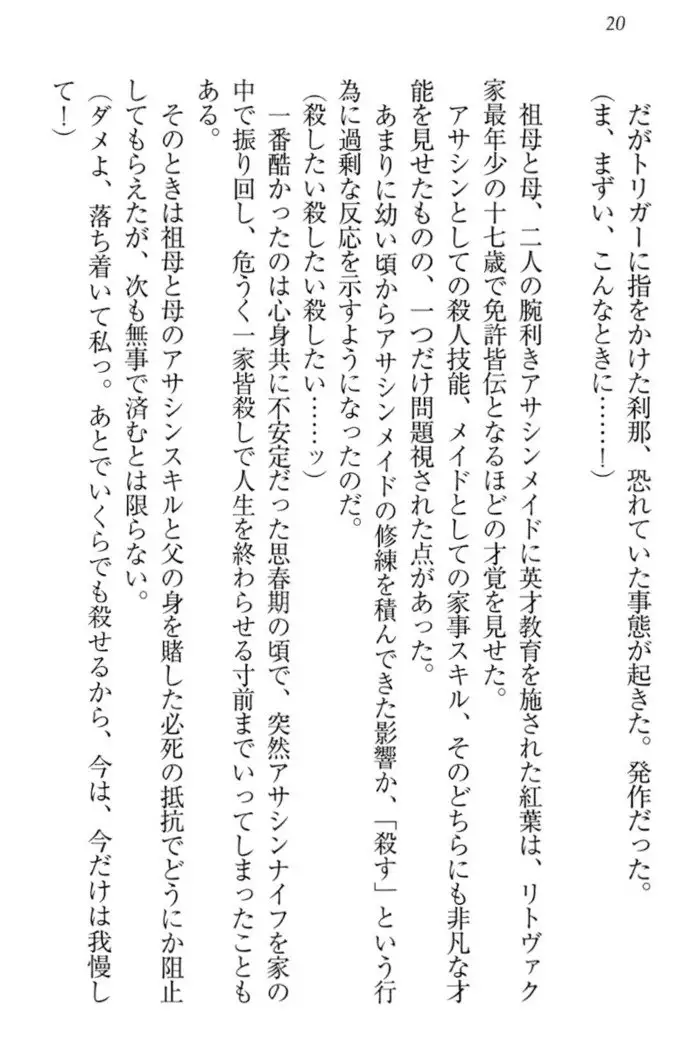 20
だがトリガーに指をかけた刹那、恐れていた事態が起きた。発作だった。
(ま、まずい、こんなときに……!)
祖母と母、二人の腕利きアサシンメイドに英才教育を施された紅葉は、リトヴァク
家最年少の十七歳で免許皆伝となるほどの才覚を見せた。
アサシンとしての殺人技能、メイドとしての家事スキル、そのどちらにも非凡な才
能を見せたものの、一つだけ問題視された点があった。
あまりに幼い頃からアサシンメイドの修練を積んできた影響か、「殺す」という行
為に過剰な反応を示すようになったのだ。
(殺したい殺したい殺したい……ッ)
一番酷かったのは心身共に不安定だった思春期の頃で、突然アサシンナイフを家の
中で振り回し、危うく一家皆殺しで人生を終わらせる寸前までいってしまったことも
ある。
そのときは祖母と母のアサシンスキルと父の身を賭した必死の抵抗でどうにか阻止
してもらえたが、次も無事で済むとは限らない。
(ダメよ、落ち着いて私っ。あとでいくらでも殺せるから、今は、今だけは我慢し
て!)